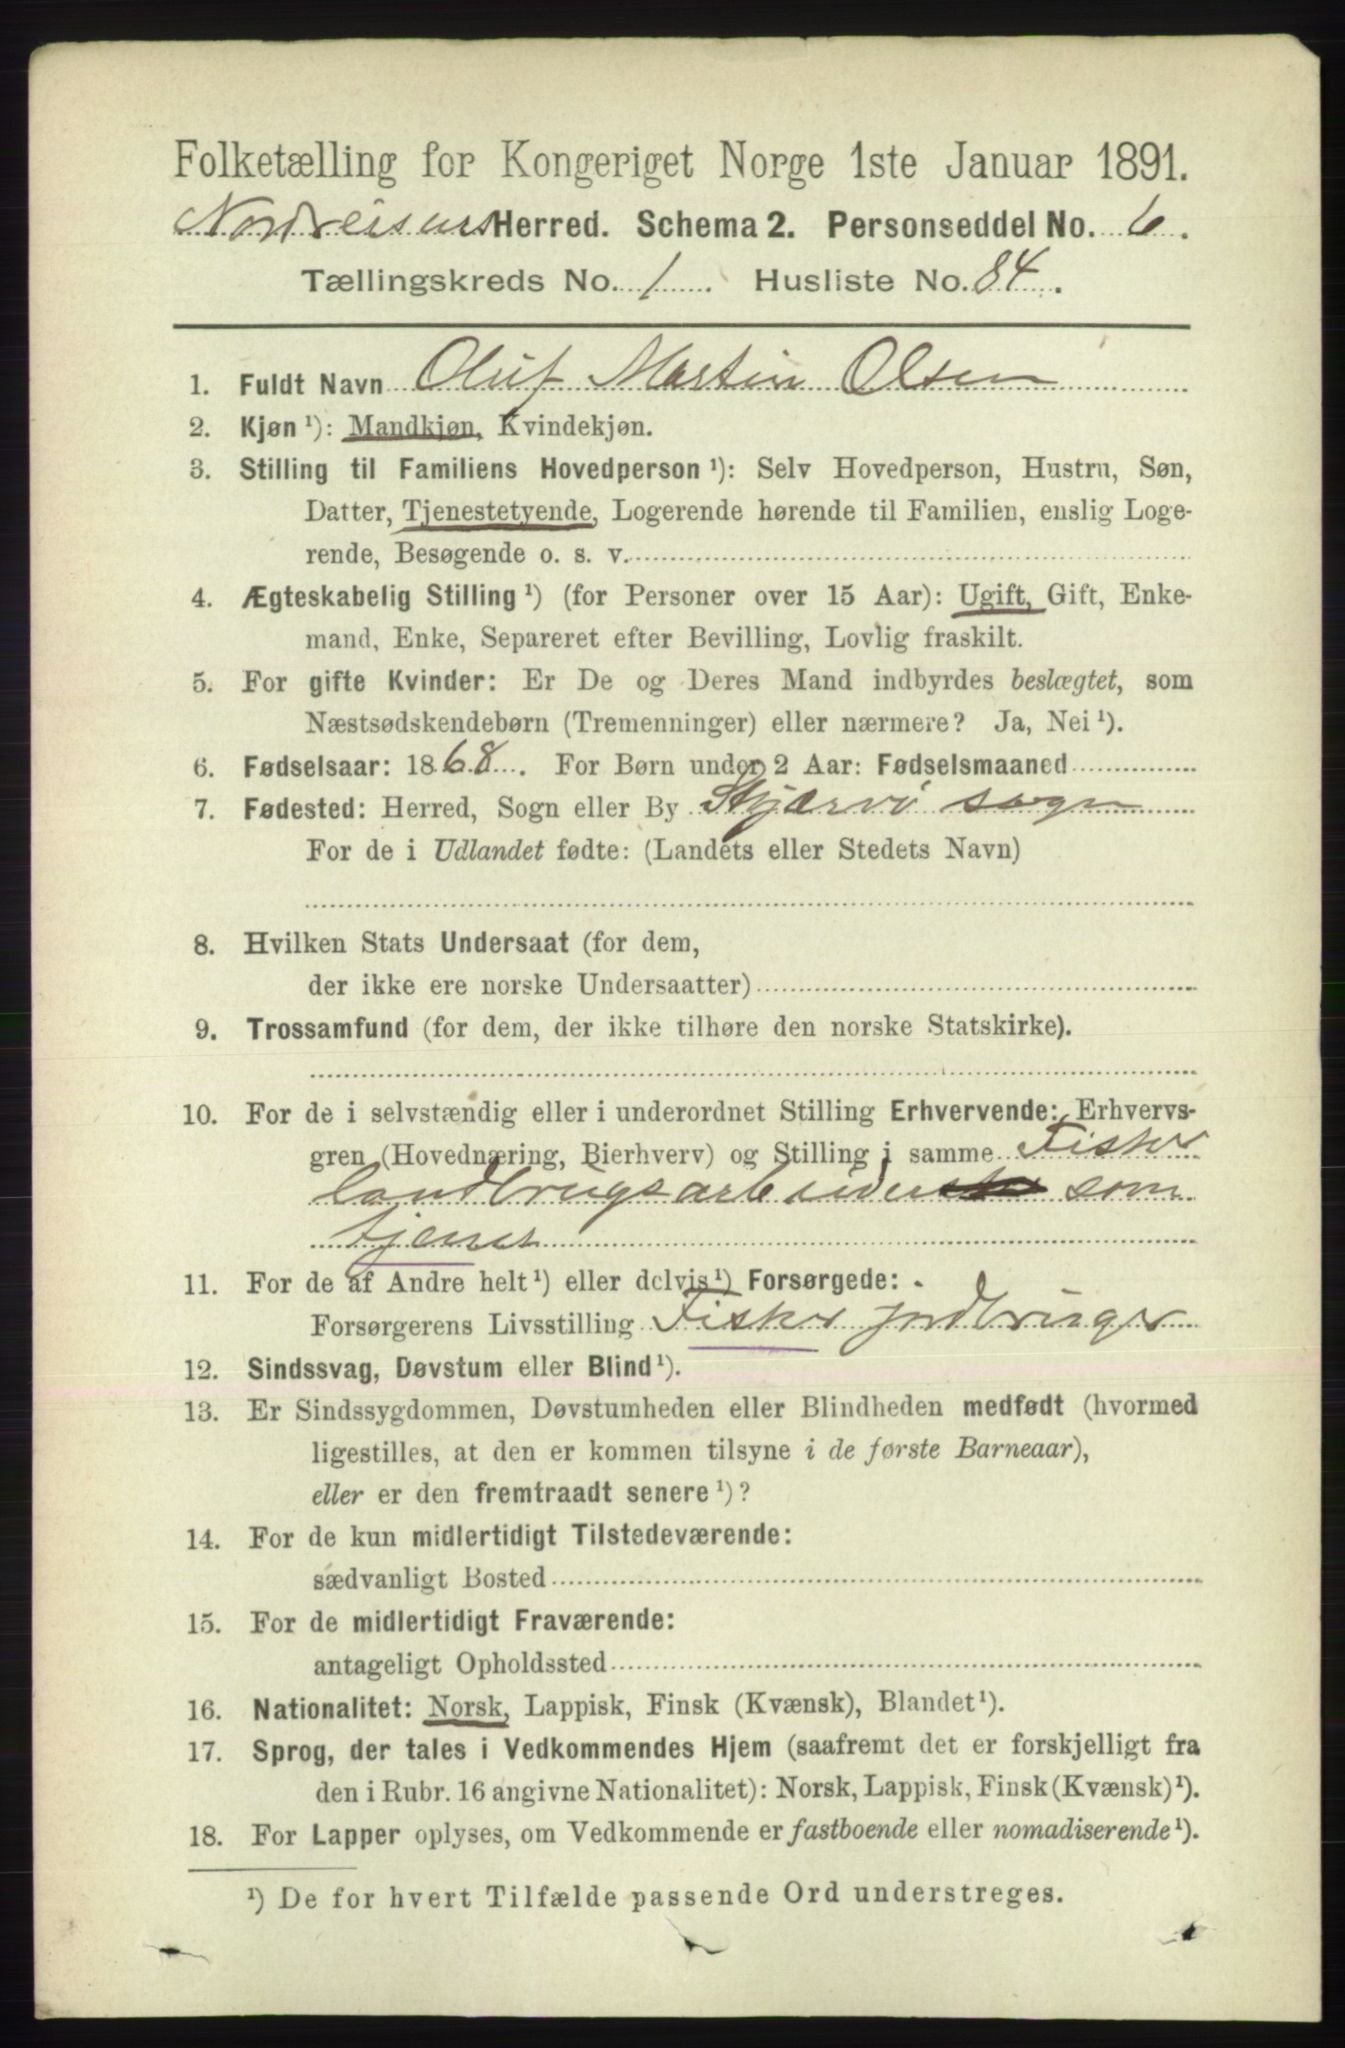 Folketælling for Kongeriget Norge 1ste Januar 1891.
Nordreisens Herred. Schema 2. Personseddel No. 6.
Tællingskreds No. 1. Husliste No. 84.
1. Fuldt Navn Oluf Martin Olsen
2. Kjøn ¹): Mandkjøn, Kvindekjøn.
3. Stilling til Familiens Hovedperson ¹): Selv Hovedperson, Hustru, Søn,
Datter, Tjenestetyende, Logerende hørende til Familien, enslig Loge-
rende, Besøgende o. s. v.
4. Ægteskabelig Stilling ¹) (for Personer over 15 Aar): Ugift, Gift, Enke-
mand, Enke, Separeret efter Bevilling, Lovlig fraskilt.
5. For gifte Kvinder: Er De og Deres Mand indbyrdes beslægtet, som
Næstsødskendebørn (Tremenninger) eller nærmere? Ja, Nei ¹).
6. Fødselsaar: 1868. For Børn under 2 Aar: Fødselsmaaned
7. Fødested: Herred, Sogn eller By Skjærvö sogn
For de i Udlandet fødte: (Landets eller Stedets Navn)
8. Hvilken Stats Undersaat (for dem,
der ikke ere norske Undersaatter)
9. Trossamfund (for dem, der ikke tilhøre den norske Statskirke).
10. For de i selvstændig eller i underordnet Stilling Erhvervende: Erhvervs-
gren (Hovednæring, Bierhverv) og Stilling i samme Fisker
landbrugsarbeider som
tjener
11. For de af Andre helt ¹) eller delvis ¹) Forsørgede:
Forsørgerens Livsstilling Fisker jordbruger
12. Sindssvag, Døvstum eller Blind ¹).
13. Er Sindssygdommen, Døvstumheden eller Blindheden medfødt (hvormed
ligestilles, at den er kommen tilsyne i de første Barneaar),
eller er den fremtraadt senere ¹)?
14. For de kun midlertidigt Tilstedeværende:
sædvanligt Bosted
15. For de midlertidigt Fraværende:
antageligt Opholdssted
16. Nationalitet: Norsk, Lappisk, Finsk (Kvænsk), Blandet ¹).
17. Sprog, der tales i Vedkommendes Hjem (saafremt det er forskjelligt fra
den i Rubr. 16 angivne Nationalitet): Norsk, Lappisk, Finsk (Kvænsk) ¹).
18. For Lapper oplyses, om Vedkommende er fastboende eller nomadiserende ¹).
¹) De for hvert Tilfælde passende Ord understreges.